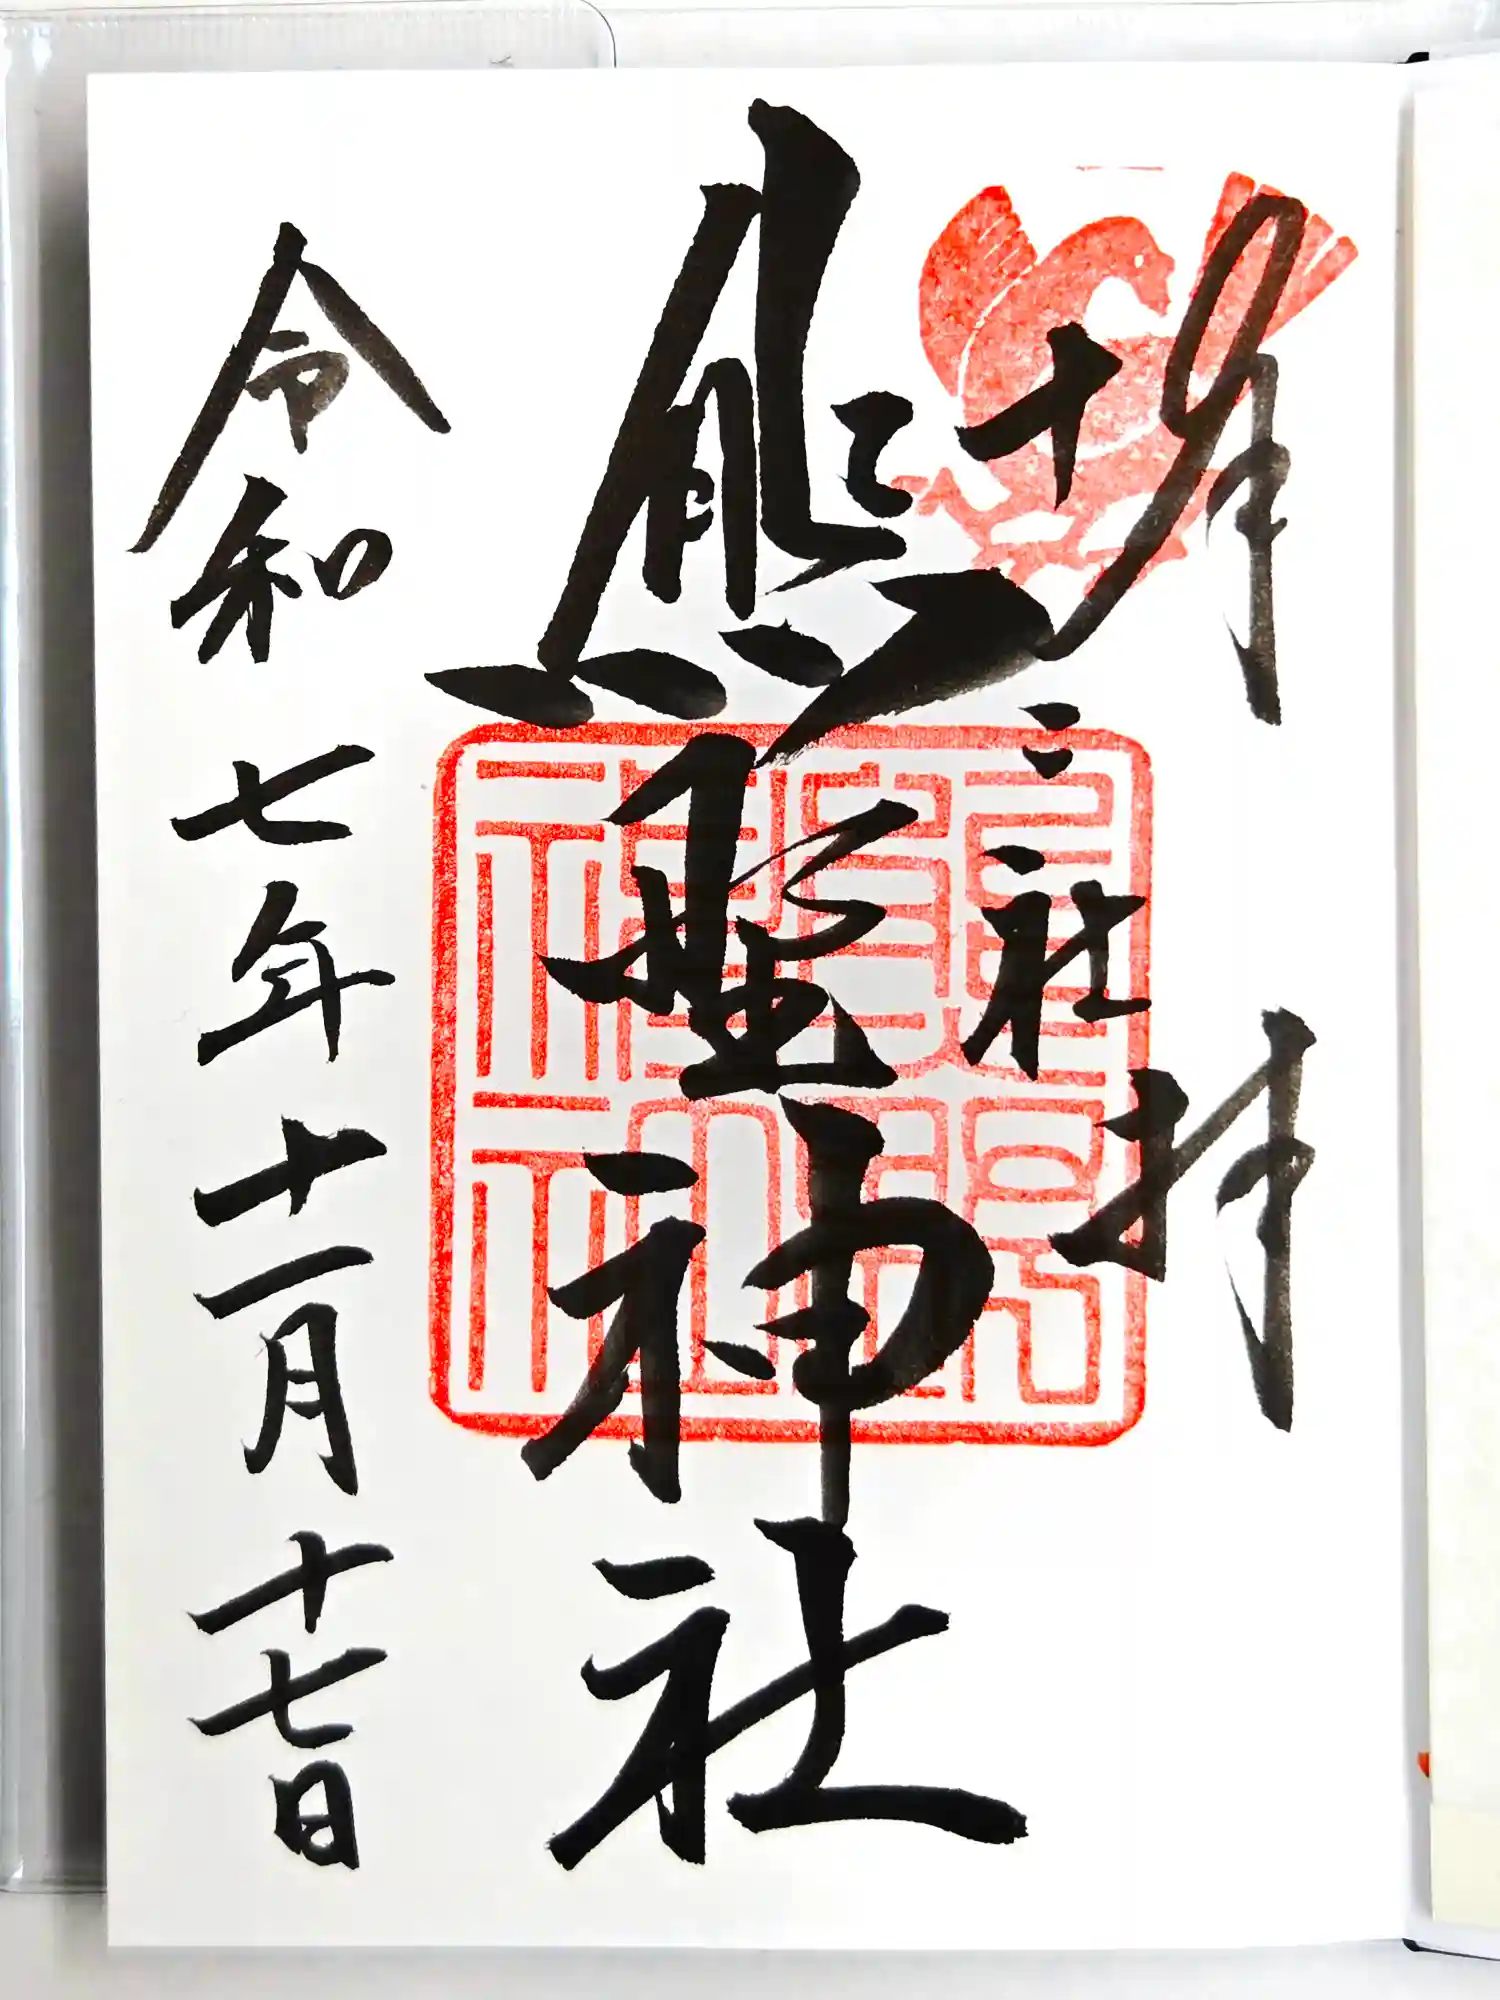 奉拝
十二社
熊野神社
令和七年十一月十七日